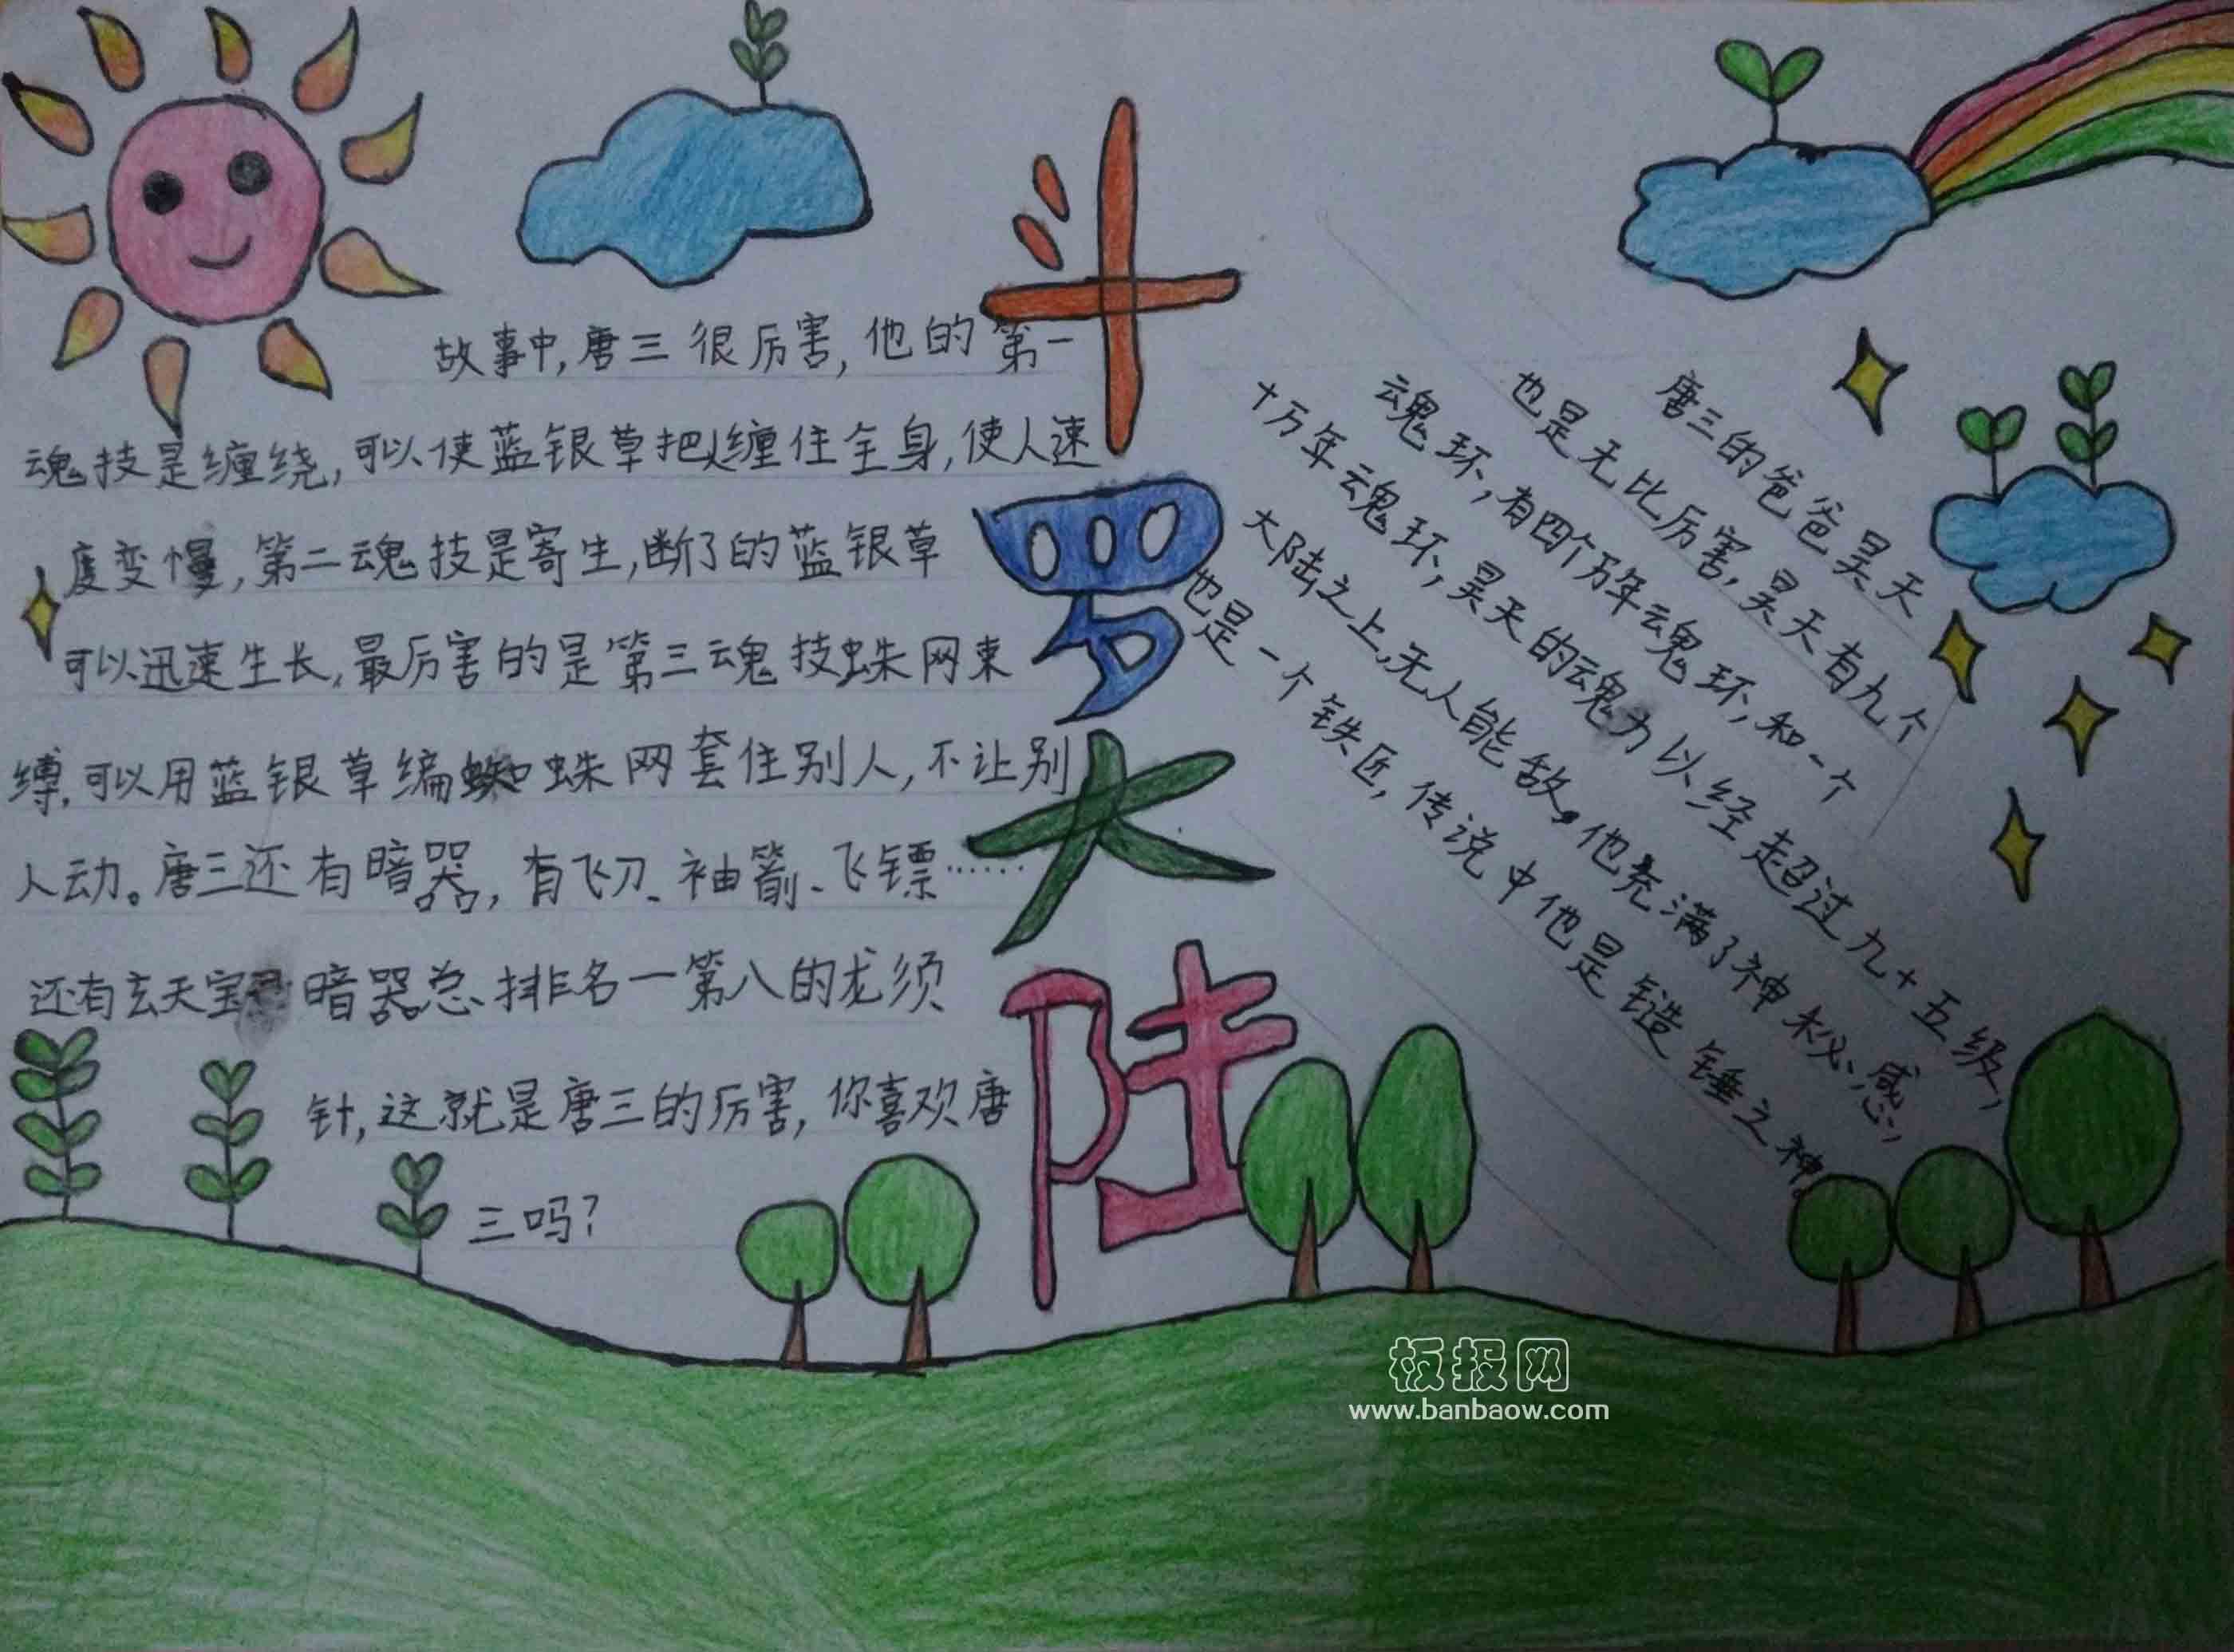 斗罗大陆
故事中,唐三很厉害,他的第一
魂技是缠绕,可以使蓝银草把人缠住全身,使人速
度变慢,第二魂技是寄生,断了的蓝银草
可以迅速生长,最厉害的是第三魂技蛛网束
缚,可以用蓝银草编蜘蛛网套住别人,不让别
人动。唐三还有暗器,有飞刀、袖箭、飞镖……
还有玄天宝 暗器总排名一第八的龙须
针,这就是唐三的厉害,你喜欢唐
三吗?
唐三的爸爸昊天
也是无比厉害,昊天有九个
魂环,有四个万年魂环,和一个
十万年魂环,昊天的魂力以经超过九十五级,
大陆之上,无人能敌。他充满了神秘感,
也是一个铁匠,传说中他是锻造锤之神。
板报网
www.banbaow.com